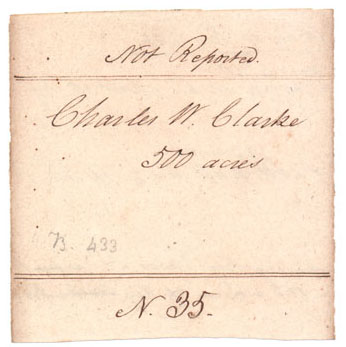 Not Reported.
Charles W. Clarke
500 acres
B. 433
N. 35.